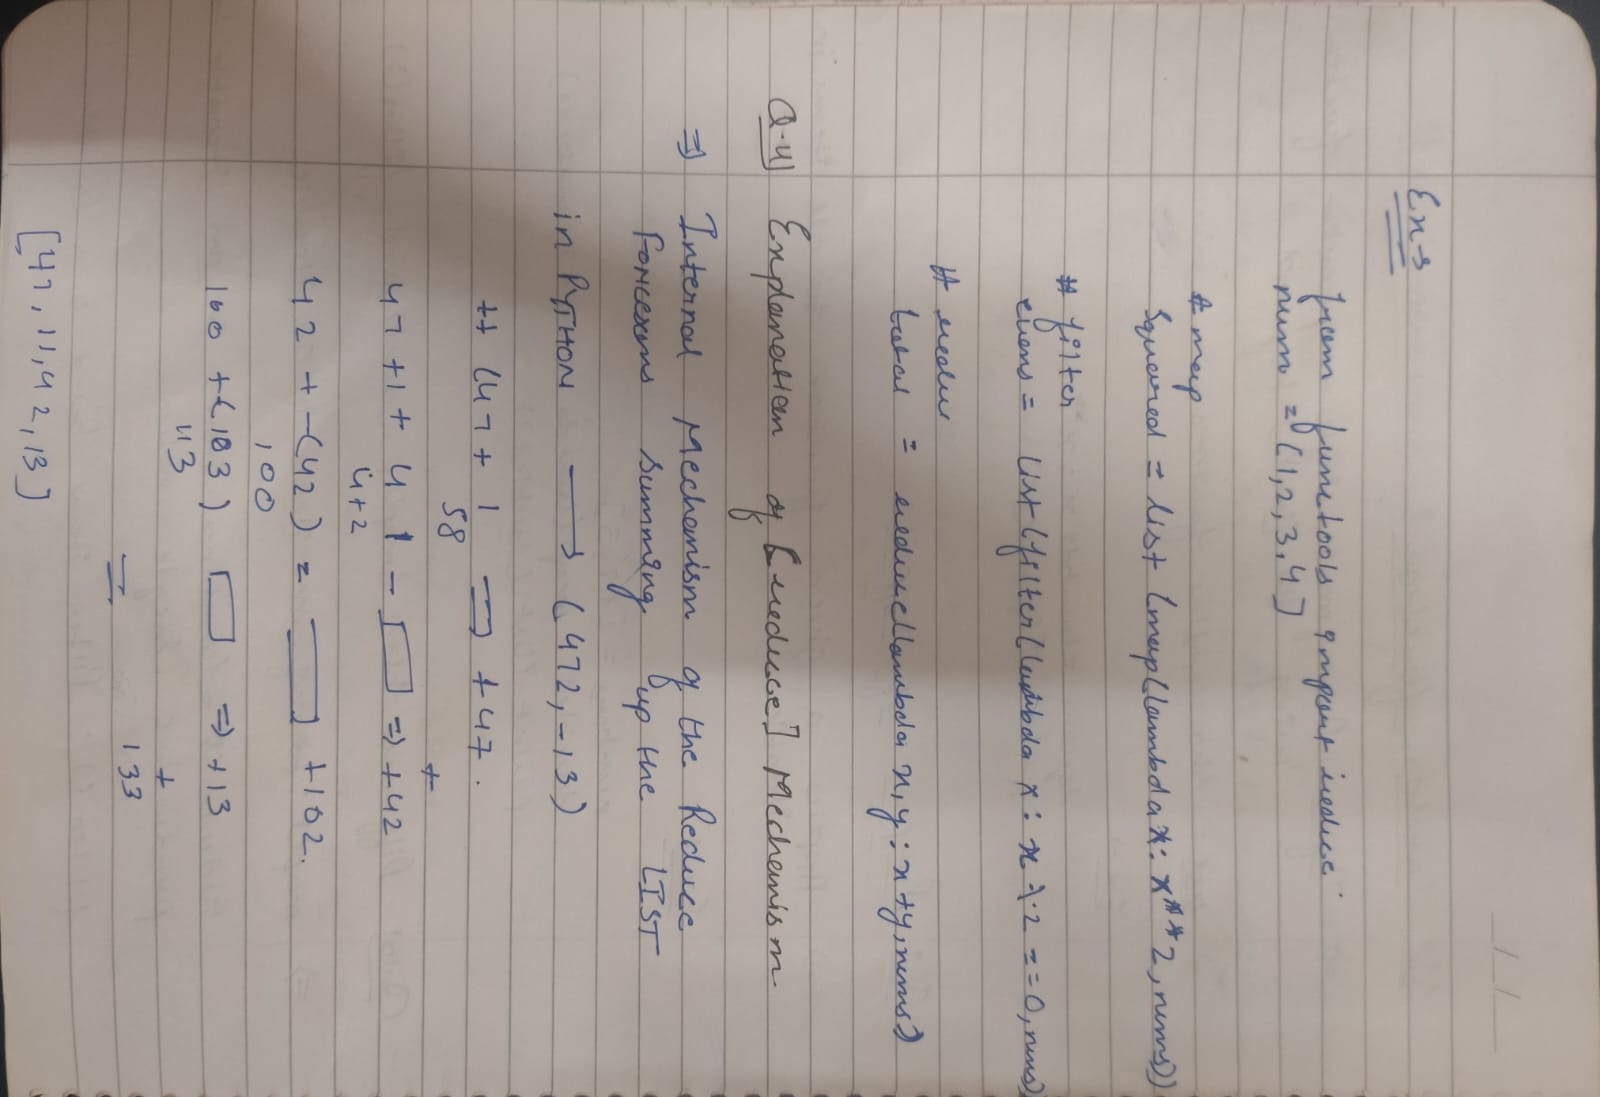 _/_/__
Ex→
from functools import reduce
num = [1,2,3,4]
# map
Squared = list (map(lambda x: x**2, nums))
# filter
evens = list (filter(lambda x: x % 2 == 0, nums)
# redu
total = reduce(lambda x, y : x + y, nums)
Q-4) Explanation of [reduce] Mechanism
⇒ Internal Mechanism of the Reduce
Summing up the LIST
in PYTHON → (472, -13)
++ (47 + 1 ⇒ +47.
58
+
47 +1 + 4 1 - ▭ ⇒ +42
4+2
42 + -(42) = ▭ +102.
100
100 +(103) ▭ ⇒ +13
113
+
= 133
[47, 11, 42, 13]